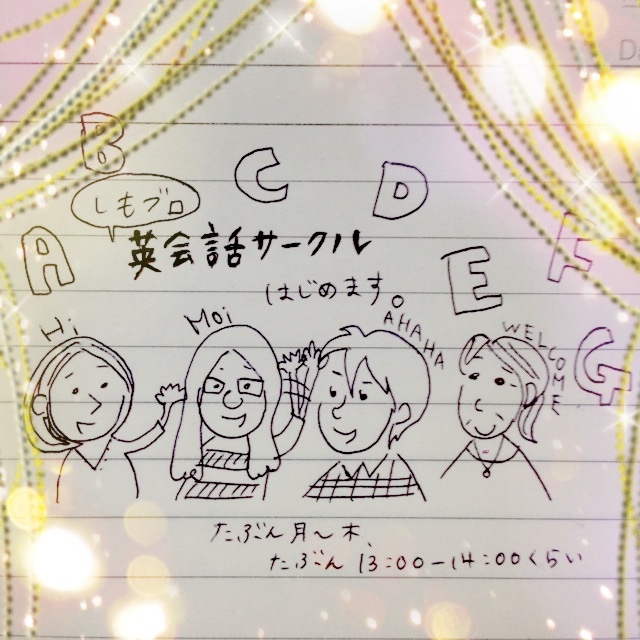 A B C D E F G
しもブロ
英会話サークル
はじめます。
Hi
Moi
AHAHAHA
WELCOME
たぶん月〜木、
たぶん 13:00-14:00くらい